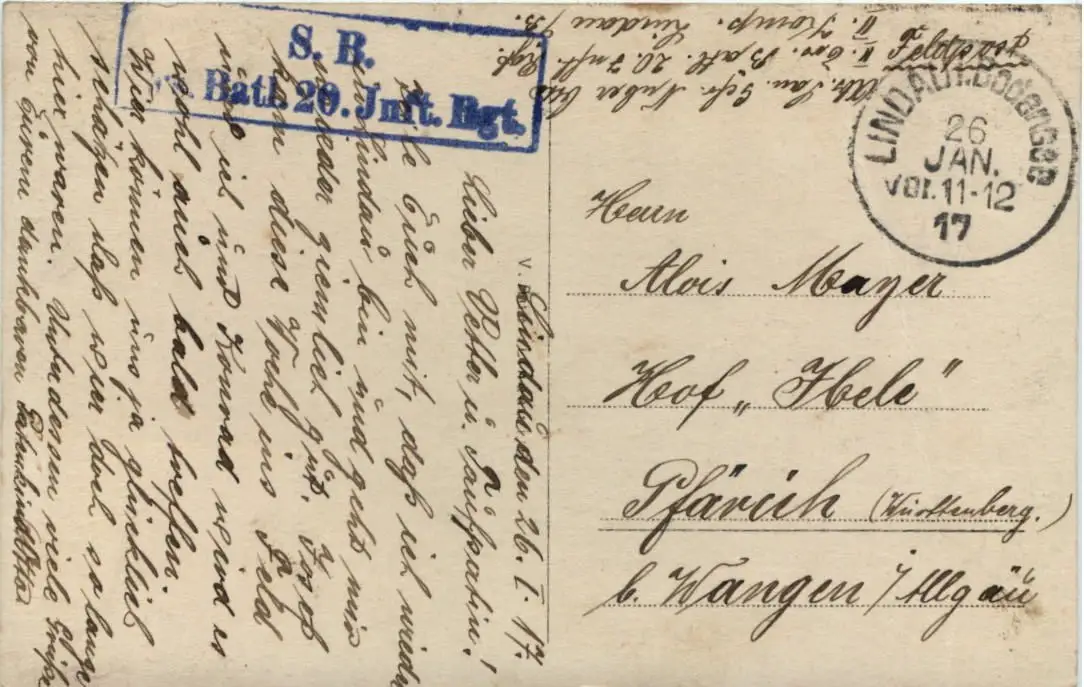 S. B.
Batl. 20. Inft. Rgt.
Feldpost
Abs. San. Gefr. Huber Otto
II. Ers. Batl. 20. Inft. Rgt.
II. Komp. Lindau i/B.
LINDAU i. Bodensee
26
JAN.
Vor. 11-12
17
Herrn
Alois Mayer
Hof „Ibele“
Pfärrich (Württemberg.)
b. Wangen i/Allgäu
Lindau, den 26. I. 17.
Lieber Vetter u. Taufpatin!
Teile Euch mit, daß ich wieder
in Lindau bin und geht mir
wieder ziemlich gut. Josef
kam diese Woche ins Feld
und ich und Konrad wird es
wohl auch bald treffen.
Wir können uns ja glücklich
schätzen daß wir doch so lange
hier waren. Unterdessen viele Grüße
von Eurem dankbaren Patenkind Otto